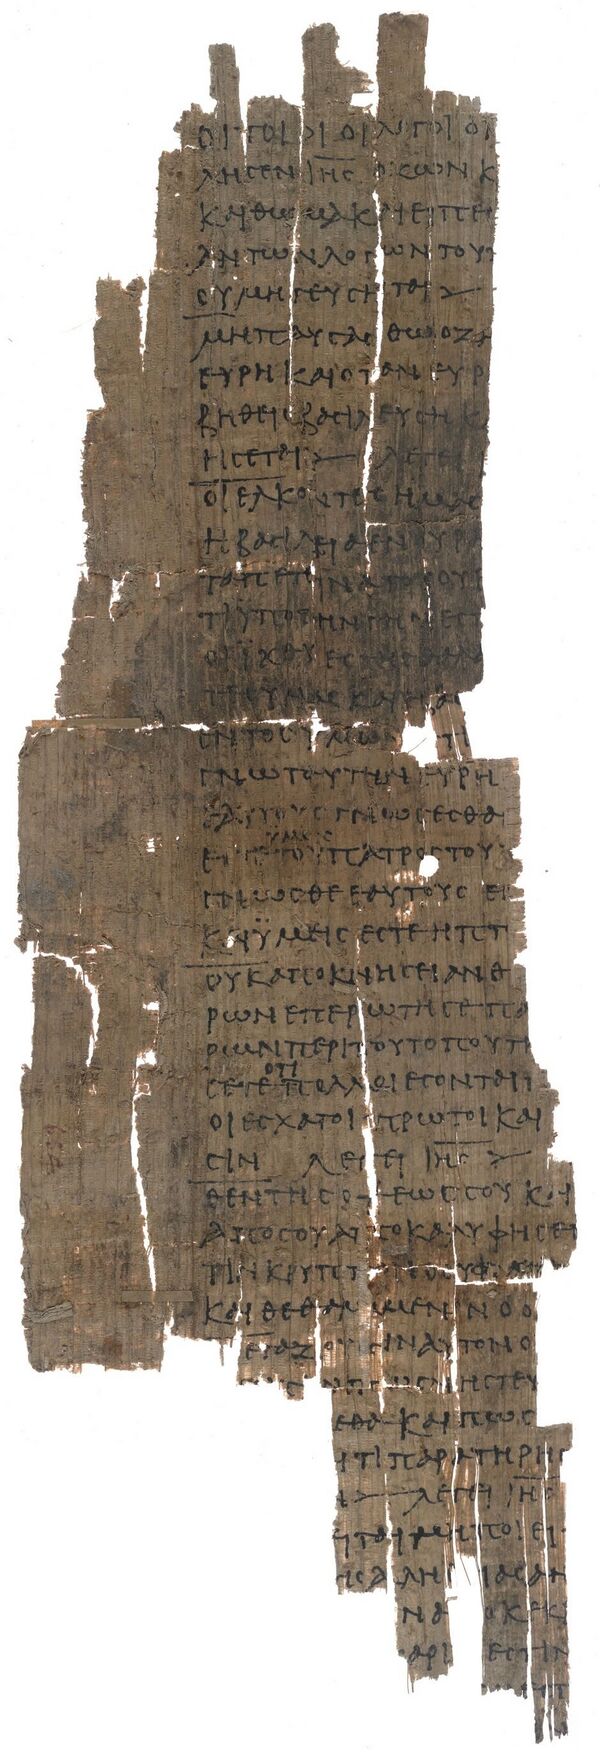 ΟΙΤΟΙΟΙΟΙΛΟΓΟΙΟΙ
ΛΗϹΕΝΙΗ̅Ϲ̅ΟΖΩΝΚ
ΚΑΙΘΩΜΑΚΑΙΕΙΠΕΝ
ΑΝΤΩΝΛΟΓΩΝΤΟΥΤ
ΟΥΜΗΓΕΥϹΗΤΑΙ >—
ΜΗΠΑΥϹΑϹΘΩΟΖΗ
ΕΥΡΗΚΑΙΟΤΑΝΕΥΡ
ΒΗΘΕΙϹΒΑϹΙΛΕΥϹΗΚ
ΗϹΕΤΑΙ >— ΛΕΓΕΙ
ΟΙΕΛΚΟΝΤΕϹΗΜΑϹ
ΗΒΑϹΙΛΕΙΑΕΝΟΥΡΑ
ΤΑΠΕΤΕΙΝΑΤΟΥΟΥΡ
ΤΙΫΠΟΤΗΝΓΗΝΕϹΤ
ΟΙΪΧΘΥΕϹΤΗϹΘΑΛΑ
ΤΕϹΥΜΑϹΚΑΙΗΒΑϹ
ΕΝΤΟϹΥΜΩΝ ΤΙ
ΓΝΩΤΑΥΤΗΝΕΥΡΗ
ΕΑΥΤΟΥϹΓΝΩϹΕϹΘΑΙ
ΥΜΕΙϹ
ΕϹΤΕΤΟΥΠΑΤΡΟϹΤΟΥ
ΓΝΩϹΘΕΕΑΥΤΟΥϹΕΝ
ΚΑΙΫΜΕΙϹΕϹΤΕΗΠΤ
ΟΥΚΑΠΟΚΝΗϹΕΙΑΝΘ
ΡΩΝΕΠΕΡΩΤΗϹΕΠΑ
ΡΩΝΠΕΡΙΤΟΥΤΟΠΟΥΤΗ
ΟΤΙ
ϹΕΤΕΠΟΛΛΟΙΕϹΟΝΤΑΙΠ
ΟΙΕϹΧΑΤΟΙΠΡΩΤΟΙΚΑΙ
ϹΙΝ ΛΕΓΕΙΙΗ̅Ϲ̅ >—
ΘΕΝΤΗϹΟΨΕΩϹϹΟΥΚΑΙ
ΑΠΟϹΟΥΑΠΟΚΑΛΥΦΗϹΕΤ
ΤΙΝΚΡΥΠΤΟΝΟΟΥΦΑΝΕ
ΚΑΙΘΕΘΑΜΜΕΝΟΝΟΟ
ΕΤΑΖΟΥϹΙΝΑΥΤΟΝΟ
ΠΩϹΝΗϹΤΕΥ
ΕΘΑΚΑΙΠΩϹ
ΙΤΙΠΑΡΑΤΗΡΗϹ
Ν >— ΛΕΓΕΙΙΗ̅Ϲ̅
ΕΙΤΑΙΜΗΠΟΙΕΙΤ
ΗϹΑΛΗΘΕΙΑϹΑΝ
ΝΑ ΟΚΕΚ
ΚΑΡΙ ΕϹΤΙΝ